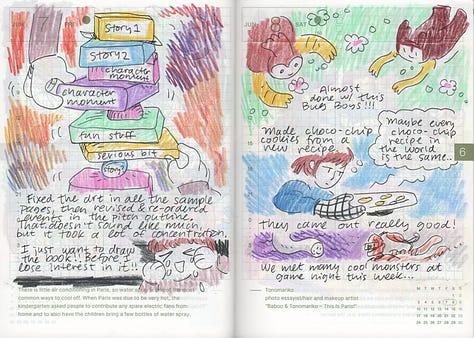 7
story 1
story 2
character
moment
character
moment
fun stuff
serious bit
Fixed the art in all the sample
pages, then revised & re-ordered
elements in the pitch outline.
That doesn't sound like much,
but it took a lot of concentration.
I just want to draw
the book!! Before I
lose interest in it!!
There is little air conditioning in Paris, so water spray is one of the most
common ways to cool off. When Paris was due to be very hot, the
kindergarten asked people to contribute any spare electric fans from
home and to also have the children bring a few bottles of water spray.
JUN
SAT
Almost
done w/ this
Bug Boys!!!
Made choco-chip
cookies from a
new recipe.
maybe every
choco-chip
recipe in
the world
is the same...
6
They came out really good!
We met many cool monsters at
game night this week...
Tonomariko
photo essayist/hair and makeup artist
"Babou & Tonomariko – This Is Paris!"
M T W T F S S
1 2
3 4 5 6 7 8 9